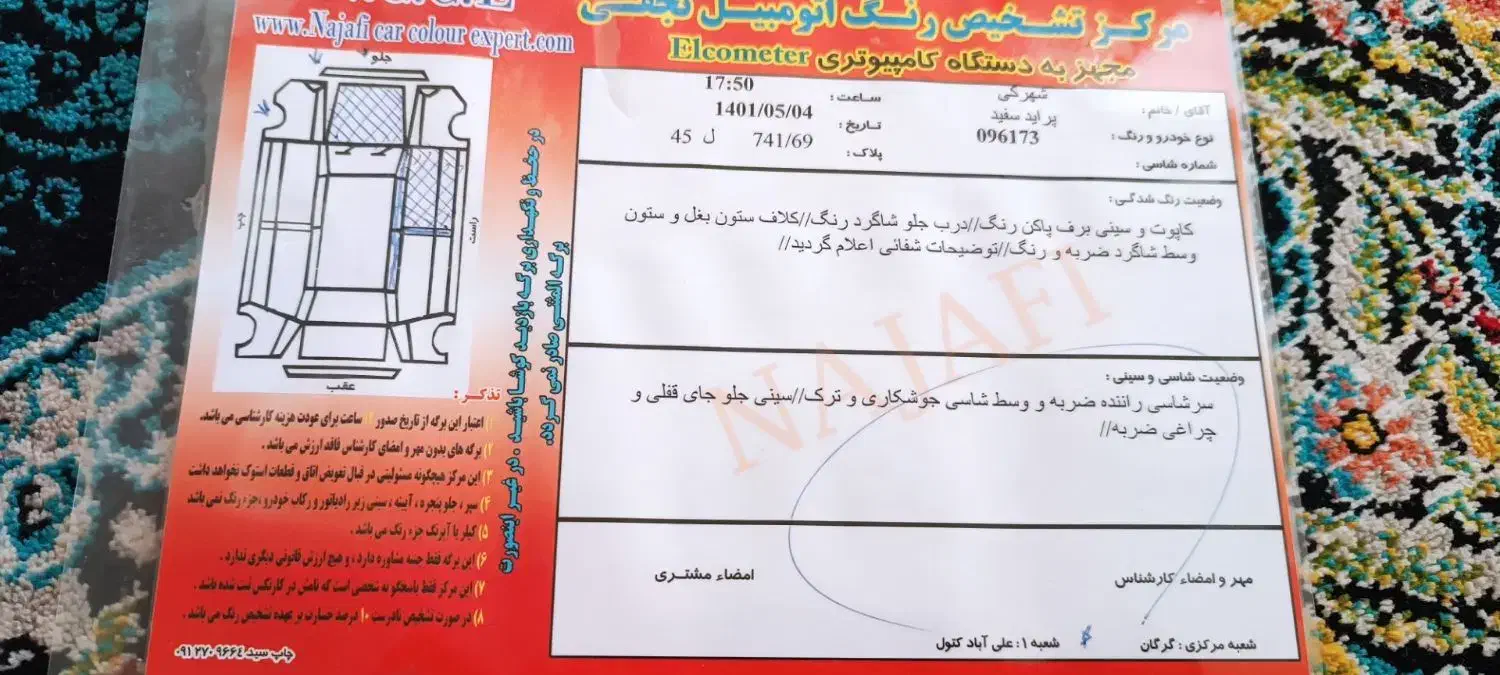 www.Najafi car colour expert.com
مرکز تشخیص رنگ اتومبیل نجفی
مجهز به دستگاه کامپیوتری Elcometer
آقای / خانم : شهرکی
ساعت : 17:50
نوع خودرو و رنگ : پراید سفید
تاریخ : 1401/05/04
شماره شاسی : 096173
پلاک : 741/69 ل 45
وضعیت رنگ شدگی :
کاپوت و سینی برف پاکن رنگ//درب جلو شاگرد رنگ//کلاف ستون بغل و ستون
وسط شاگرد ضربه و رنگ//توضیحات شفائی اعلام گردید//
وضعیت شاسی و سینی :
سرشاسی راننده ضربه و وسط شاسی جوشکاری و ترک//سینی جلو جای قفلی و
چراغی ضربه//
NAJAFI
مهر و امضاء کارشناس
امضاء مشتری
شعبه مرکزی : گرگان
شعبه ۱ : علی آباد کتول
جلو
چپ
راست
عقب
در حفظ و نگهداری برگه بازدید کوشا باشید . در غیر اینصورت
برگ المثنی صادر نمی گردد.
تذکر :
۱) اعتبار این برگه از تاریخ صدور ۱۲ ساعت برای عودت هزینه کارشناسی می باشد.
۲) برگه های بدون مهر و امضای کارشناس فاقد ارزش می باشد .
۳) این مرکز هیچگونه مسئولیتی در قبال تعویض اتاق و قطعات استوک نخواهد داشت
۴) سپر ، جلو پنجره ، آیینه ، سینی زیر رادیاتور و رکاب خودرو ،جزء رنگ نمی باشد
۵) کیلر یا آبرنگ جزء رنگ می باشد .
۶) این برگه فقط جنبه مشاوره دارد ، و هیچ ارزش قانونی دیگری ندارد .
۷) این مرکز فقط پاسخگو به شخصی است که نامش در کارتکس ثبت شده باشد .
۸) در صورت تشخیص نادرست ۱۰ درصد خسارت بر عهده تشخیص رنگ می باشد .
چاپ سید ۰۹۱۲۷۰۹۶۶۴